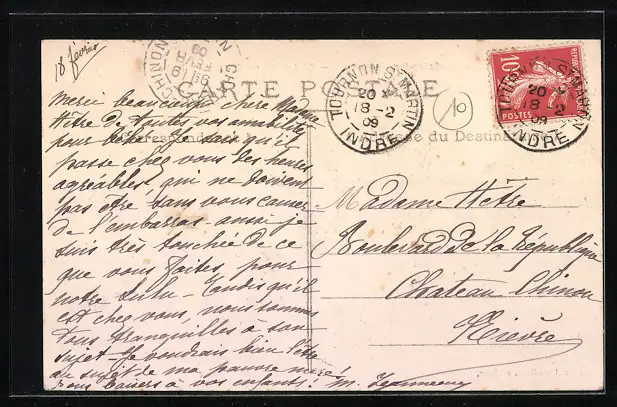 18 février
CARTE POSTALE
Correspondance
Adresse du Destinataire
Merci beaucoup chère Madame
Hêtre de toutes vos amabilités
pour bébé. Je sais qu'il
passe chez vous les heures
agréables, qui ne doivent
pas être sans vous causer
de l'embarras - aussi je
suis très touchée de ce
que vous faites, pour
notre Lulu - Tandis qu'il
est chez vous, nous sommes
tous tranquilles à son
sujet - Je voudrais bien l'être
au sujet de ma pauvre mère!
bons baisers à vos enfants!
TOURNON ST MARTIN
20
18-2
09
INDRE
10
POSTES
10
TOURNON ST MARTIN
20
18-2
09
INDRE
Madame Hêtre
Boulevard de la République
Château Chinon
Nièvre